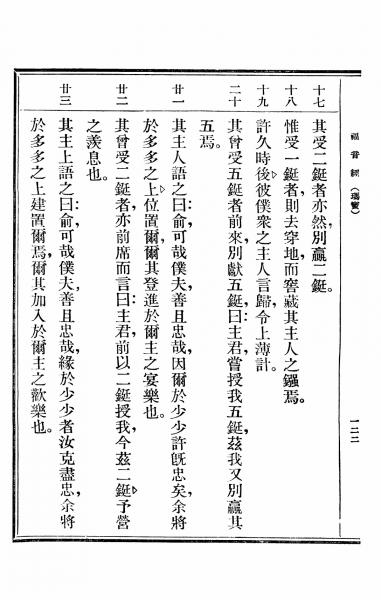 福音經(瑪竇)
一二二
十七 其受二鋌者亦然,別贏二鋌。
十八 惟受一鋌者,則去穿地,而窖藏其主人之鏹焉。
十九 許久時後,彼僕衆之主人言歸,令上薄計。
二十 其曾受五鋌者前來,別獻五鋌,曰:主君,嘗授我五鋌,茲我又別贏其
五焉。
廿一 其主人語之曰:俞,可哉僕夫,善且忠哉,因爾於少少許旣忠矣,余將
於多多之上位置爾,爾其登進於爾主之宴樂也。
廿二 其曾受二鋌者,亦前席而言曰:主君,前以二鋌授我,今茲二鋌予營
之羨息也。
廿三 其主上語之曰:俞,可哉僕夫,善且忠哉,緣於少少者汝克盡忠,余將
於多多之上建置爾焉,爾其加入於爾主之歡樂也。